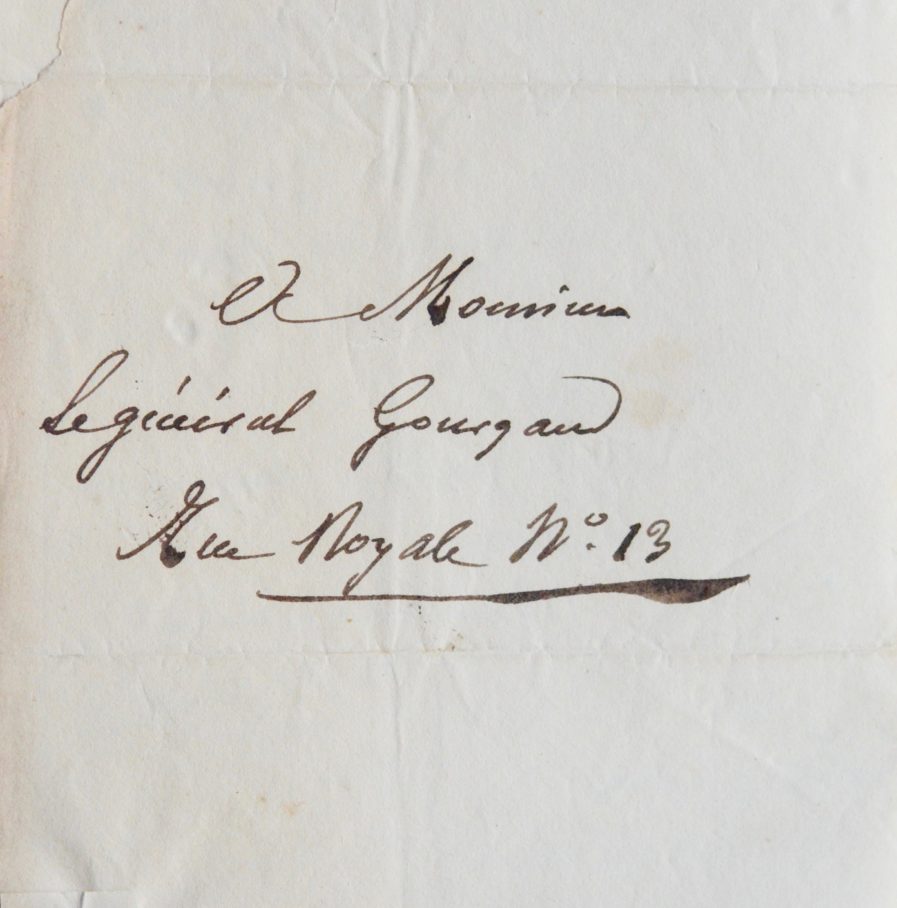 A Monsieur
Le général Gourgaud
Rue Royale N.º 13